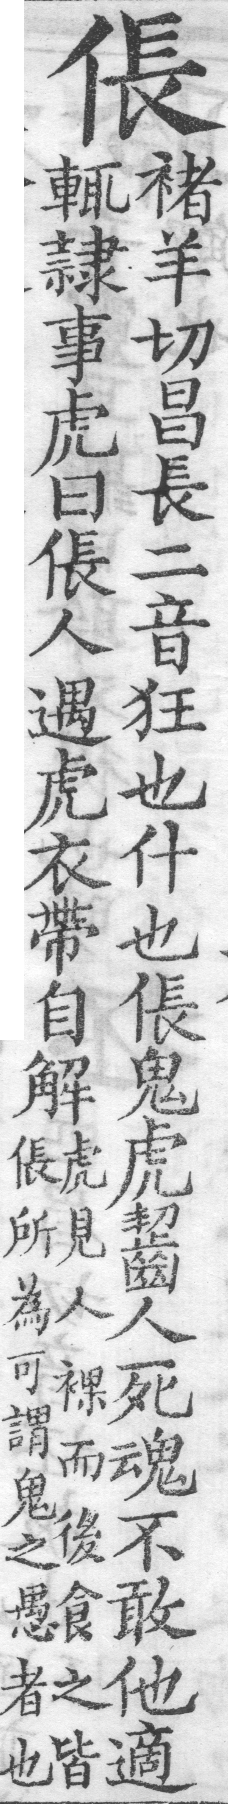 倀
褚羊切昌長二音狂也什也倀鬼虎齧人死魂不敢他適
輒隷事虎曰倀人遇虎衣帶自解
虎見人裸而後食之皆
倀所為可謂鬼之愚者也